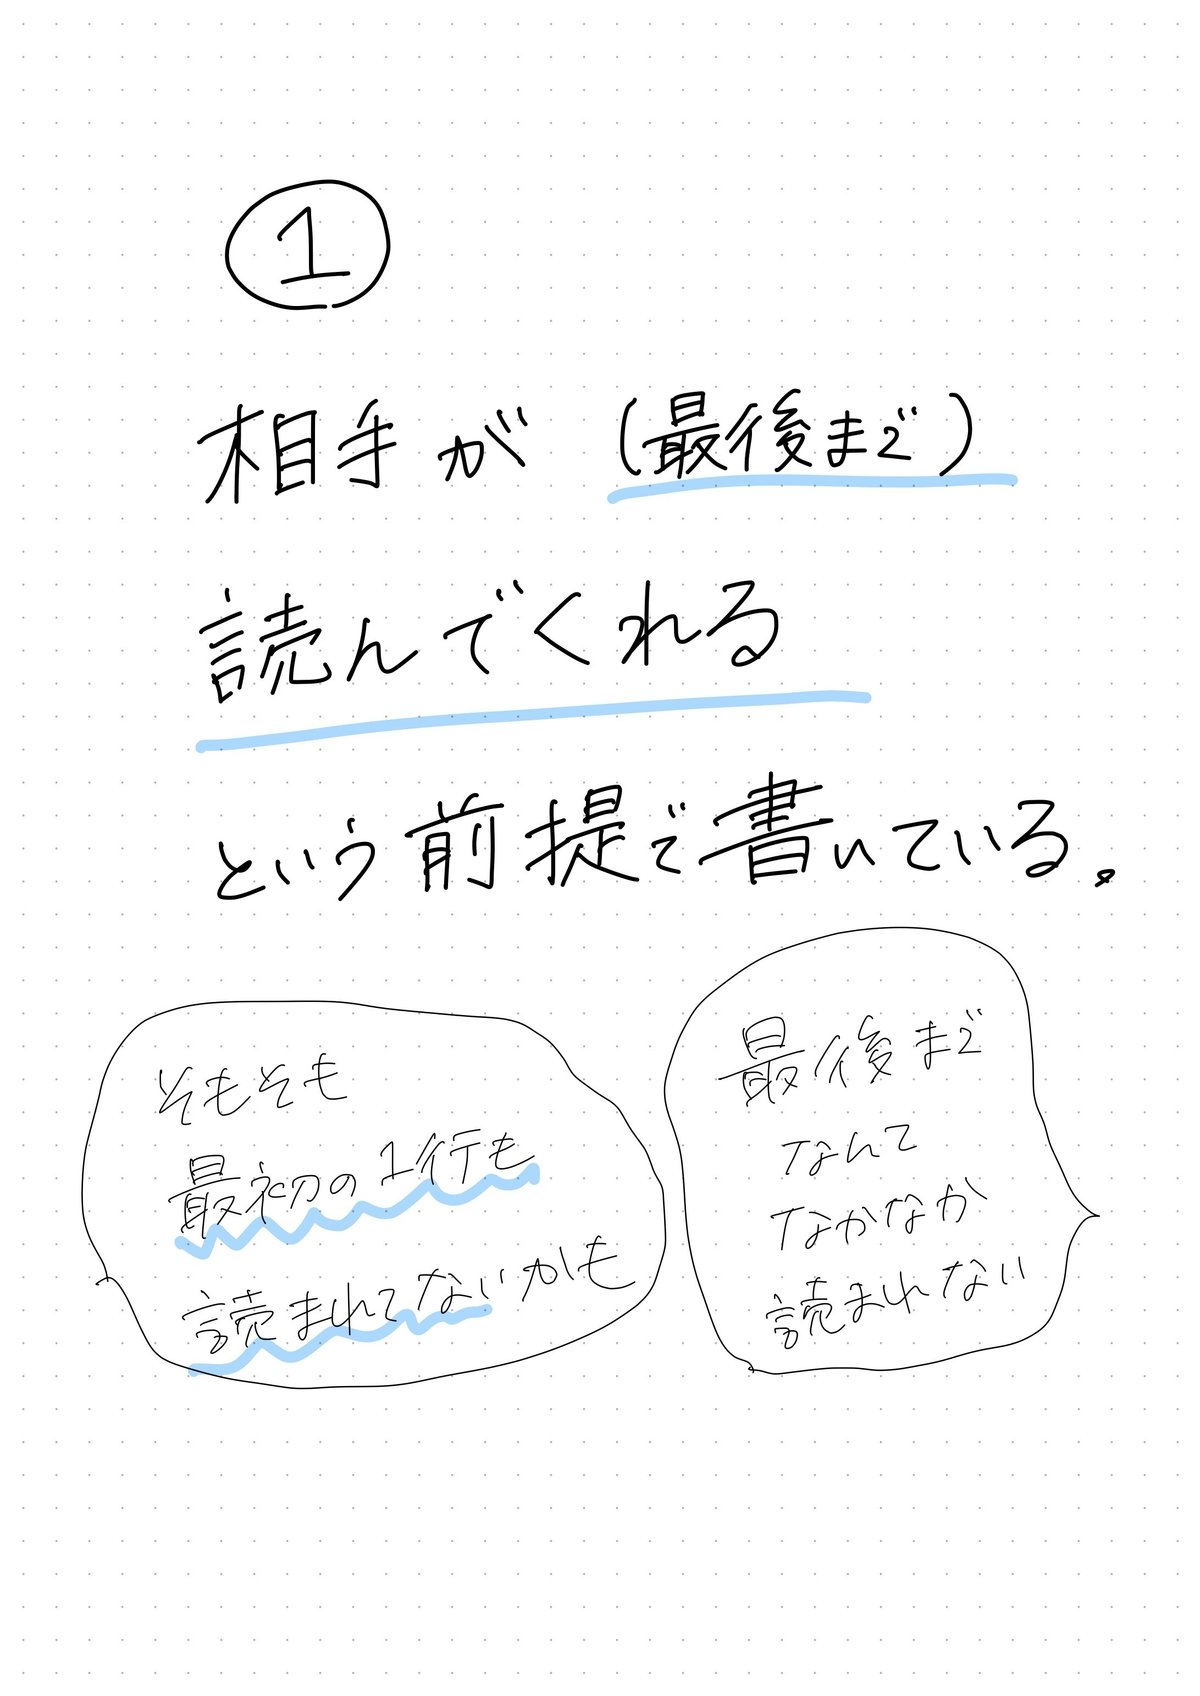 ①
相手が（最後まで）
読んでくれる
という前提で書いている。
そもそも
最初の1行も
読まれてないかも
最後まで
なんて
なかなか
読まれない